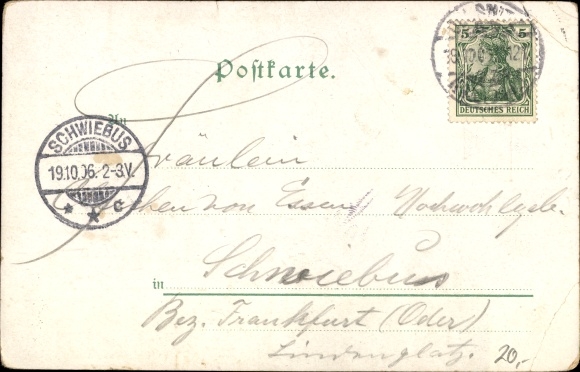 Postkarte.
5 5
DEUTSCHES REICH
An
SCHWIEBUS
19.10.06. 2-3V.
* * c
Fräulein
von Essen Hochwohlgeb.
in Schwiebus
Bez. Frankfurt (Oder)
Lindenplatz.
20,-